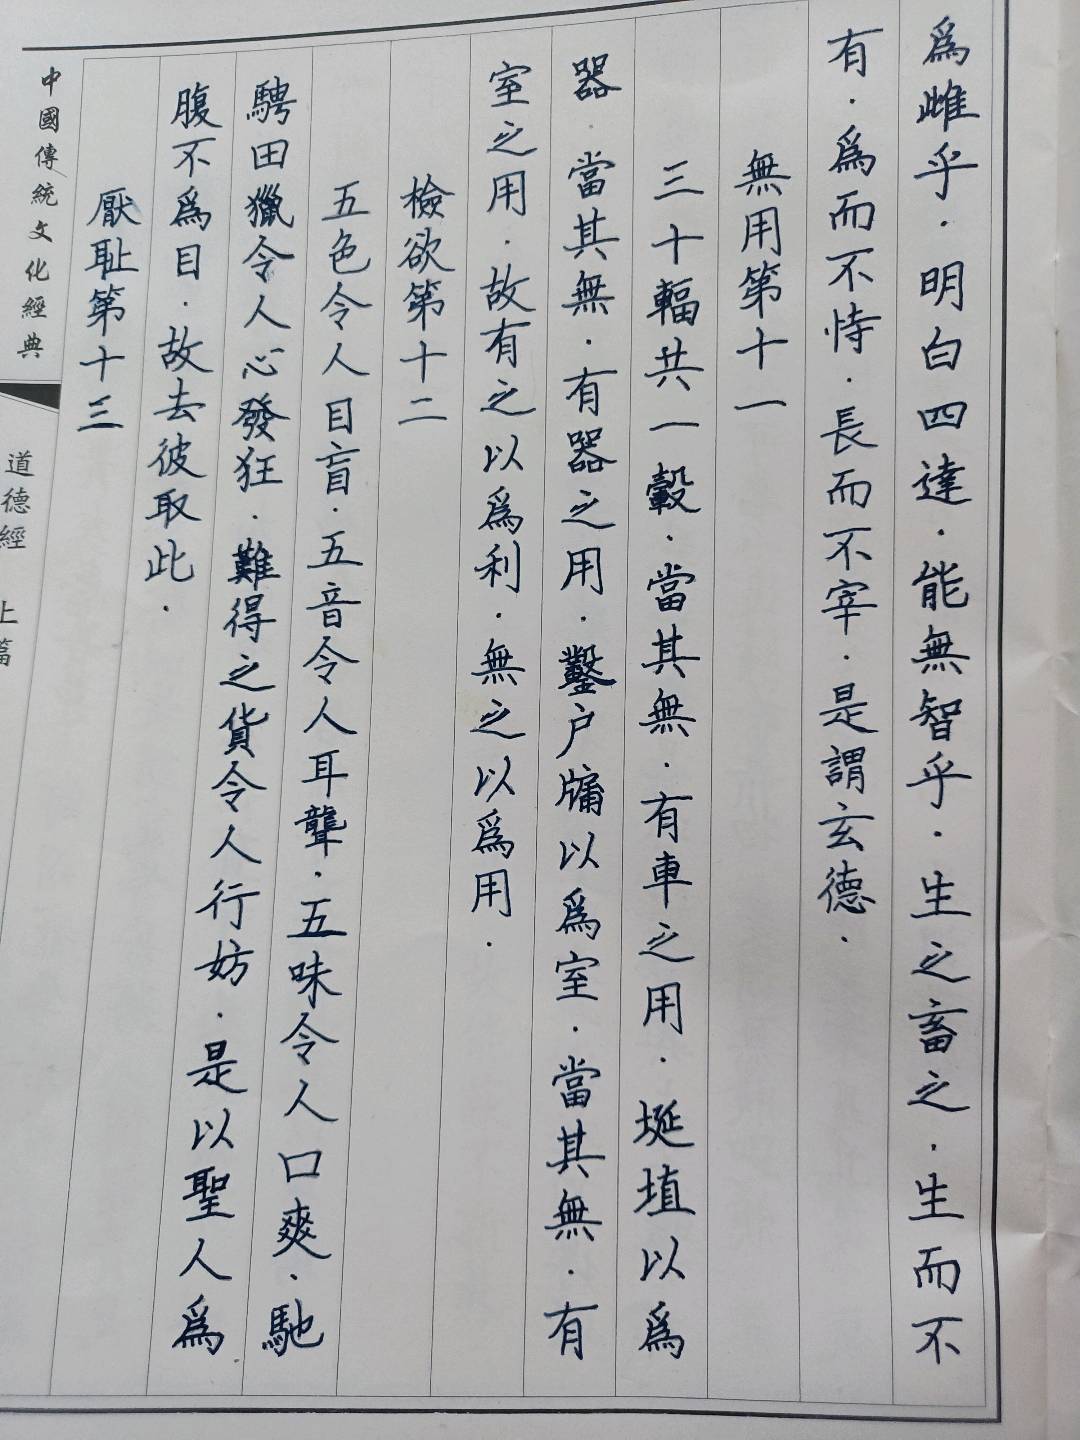 為雌乎．明白四達．能無智乎．生之畜之．生而不
有．為而不恃．長而不宰．是謂玄德．
無用第十一
三十輻共一轂．當其無．有車之用．埏埴以為
器．當其無．有器之用．鑿户牖以為室．當其無．有
室之用．故有之以為利．無之以為用．
檢欲第十二
五色令人目盲．五音令人耳聾．五味令人口爽．馳
騁田獵令人心發狂．難得之貨令人行妨．是以聖人為
腹不為目．故去彼取此．
厭恥第十三
中國傳統文化經典
道德經 上篇